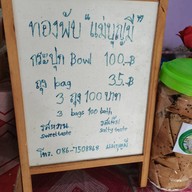 ทองพับ "แม่บุญมี"
กระปุก Bowl 100.-฿
ถุง bag 35.฿
3 ถุง 100 บาท
3 bags 100 bath
รสหวาน รสเค็ม
sweet taste Salty taste
โทร. แม่บุญมี